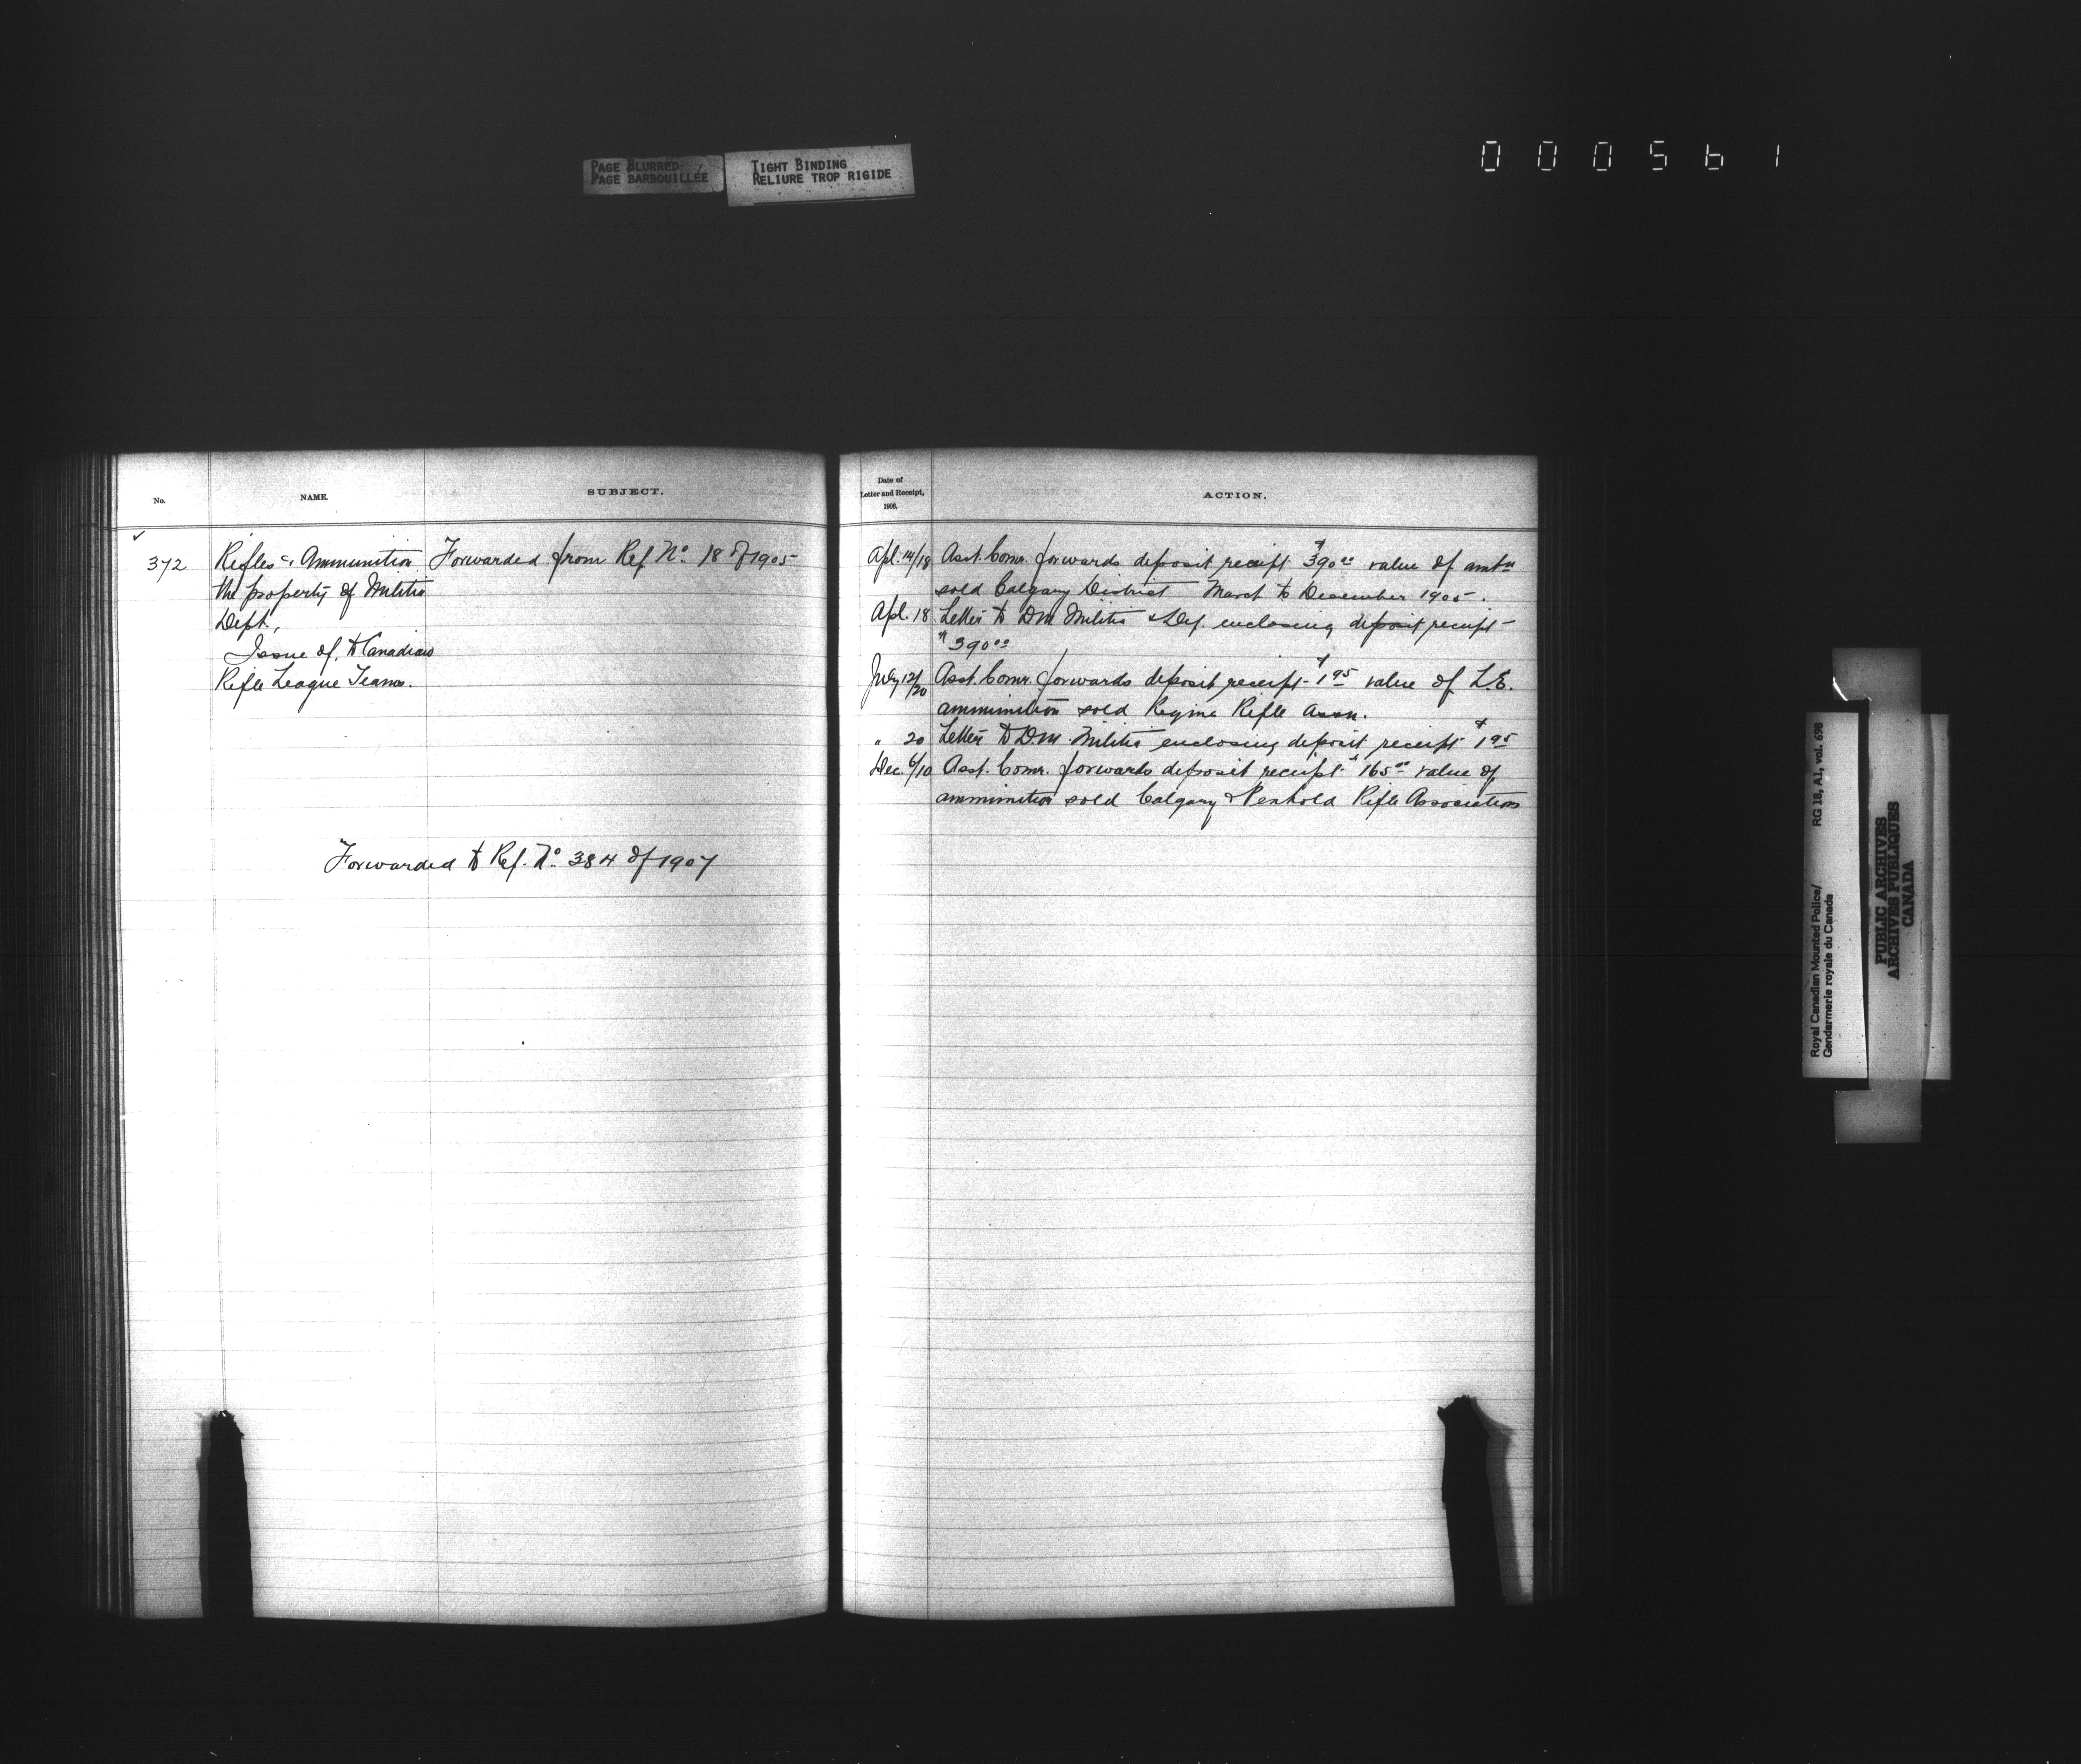 PAGE BLURRED
PAGE BARBOUILLÉE
TIGHT BINDING
RELIURE TROP RIGIDE
000561
No.
NAME.
SUBJECT.
372
Rifles & Ammunition
the property of Militia
Dept.,
Issue of, to Canadian
Rifle League Teams.
Forwarded from Ref. No. 18 of 1905
Forwarded to Ref. No. 384 of 1907
Date of
Letter and Receipt,
1906.
ACTION.
Apl. 14/18 Asst. Comr. forwards deposit receipt $390 00 value of amtn
sold Calgary District March to December 1905.
Apl. 18 Letter to DM Militia & Def. enclosing deposit receipt
$390 00
July 12/20 Asst. Comr. forwards deposit receipt $1 95 value of L.E.
ammunition sold Regina Rifle Assn.
" 20 Letter to D.M. Militia enclosing deposit receipt $1 95
Dec. 6/10 Asst. Comr. forwards deposit receipt $165 00 value of
ammunition sold Calgary & Penhold Rifle Association
Royal Canadian Mounted Police/ RG 18, A1, vol. 698
Gendarmerie royale du Canada
PUBLIC ARCHIVES
ARCHIVES PUBLIQUES
CANADA